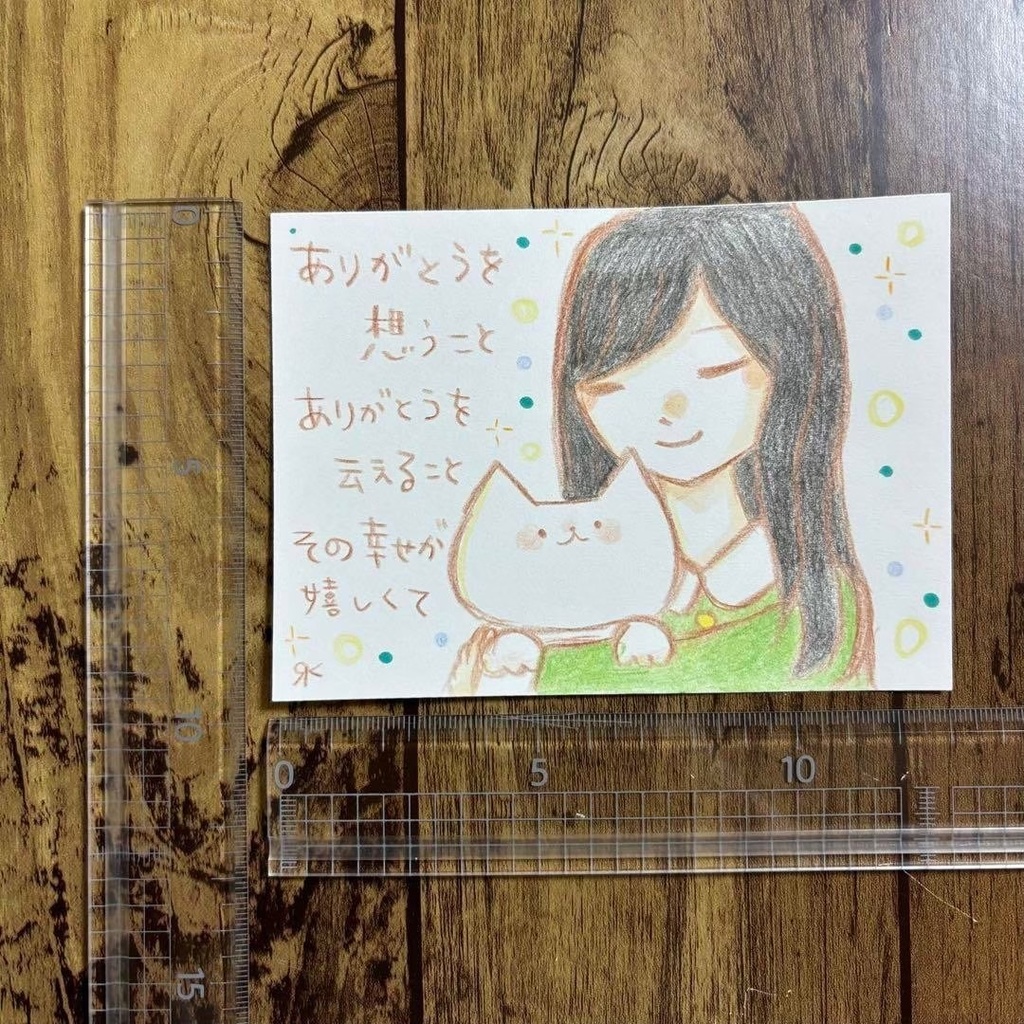 ありがとうを
想うこと
ありがとうを
云えること
その幸せが
嬉しくて
0
5
10
15
0
5
10